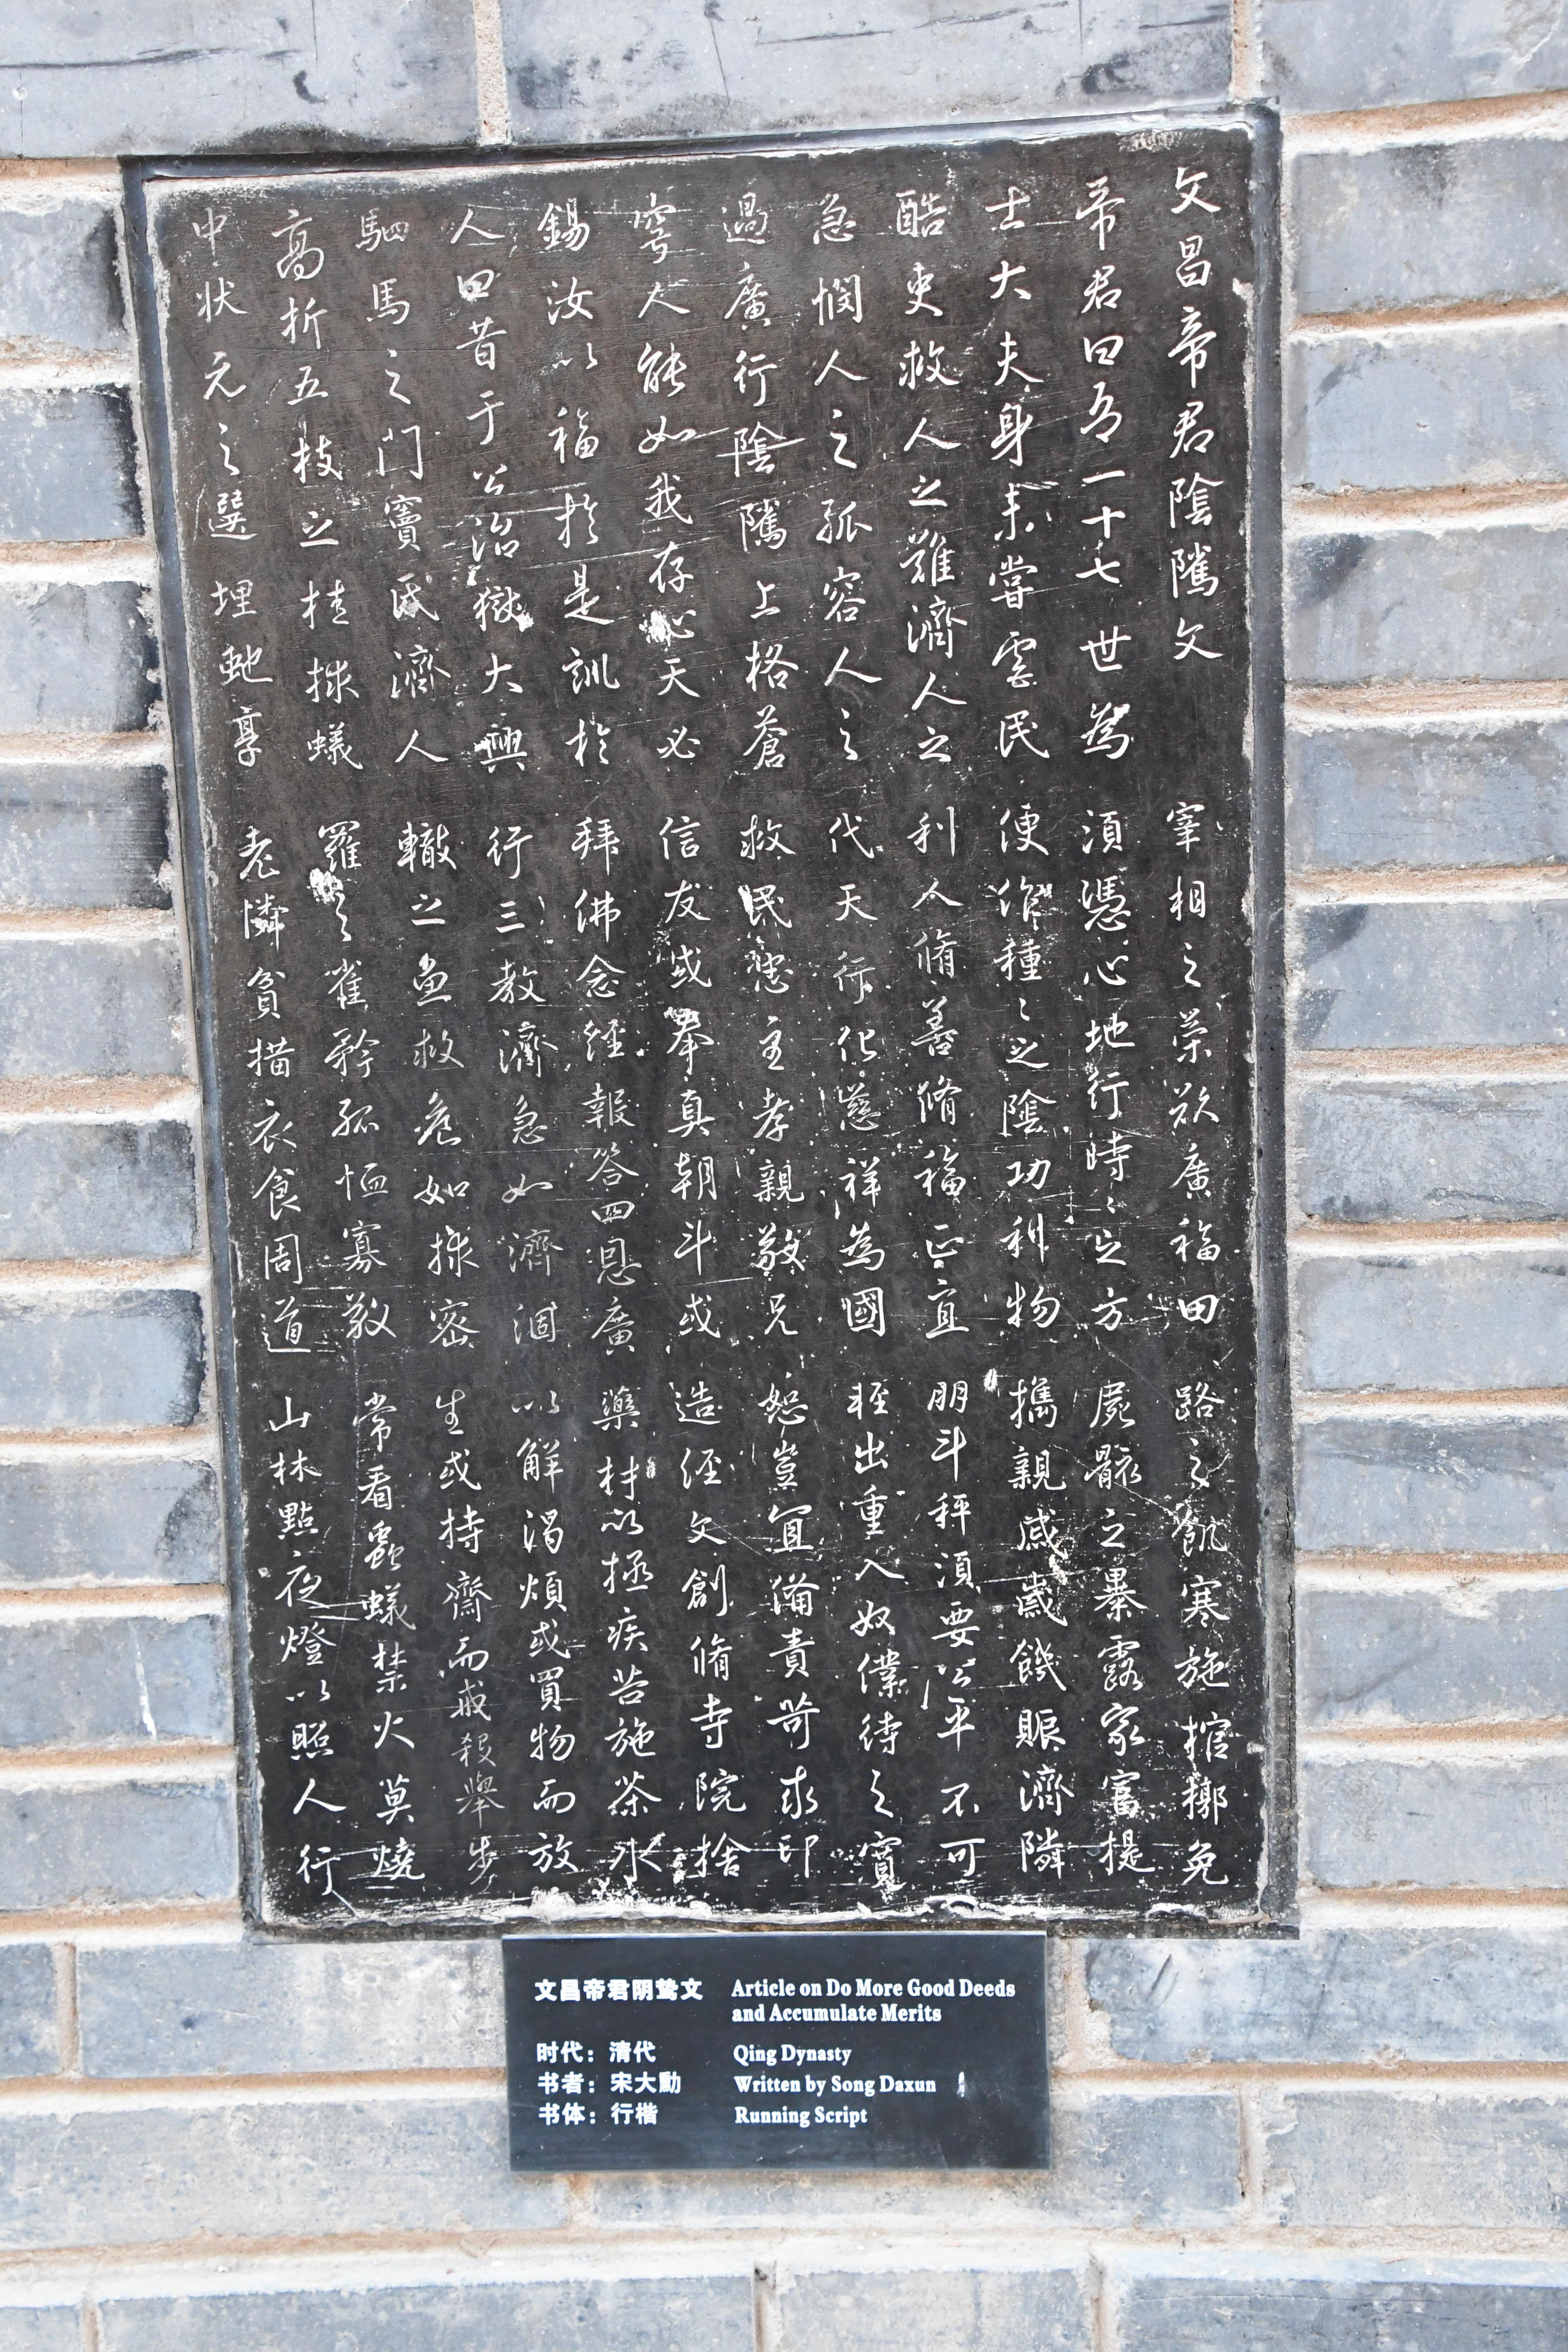 文昌帝君陰隲文
帝君曰吾一十七世為
士大夫身未嘗虐民
酷吏救人之難濟人之
急憫人之孤容人之
過廣行陰隲上格蒼
穹人能如我存心天必
錫汝以福於是訓於
人曰昔于公治獄大興
駟馬之門竇氏濟人
高折五枝之桂捄蟻
中状元之選埋虵享
宰相之荣欲廣福田
須憑心地行時々之方
便作種々之陰功利物
利人脩善脩福正直
代天行化慈祥為國
救民主孝親敬兄
信友或奉真朝斗或
拜佛念經報答四恩廣
行三教濟急如濟涸
轍之魚救危如捄密
羅之雀矜孤恤寡敬
老憐貧措衣食周道
路之飢寒施棺槨免
屍骸之暴露家富提
攜親戚歲饑賑濟隣
朋斗秤須要公平不可
軽出重入奴僕待之寬
恕豈宜備責苛求印
造經文創脩寺院捨
藥材以拯疾苦施茶水
以解渴煩或買物而放
生或持齋而戒殺舉步
常看蟲蟻禁火莫燒
山林點夜燈以照人行
文昌帝君阴骘文 Article on Do More Good Deeds
and Accumulate Merits
时代：清代 Qing Dynasty
书者：宋大勳 Written by Song Daxun
书体：行楷 Running Script